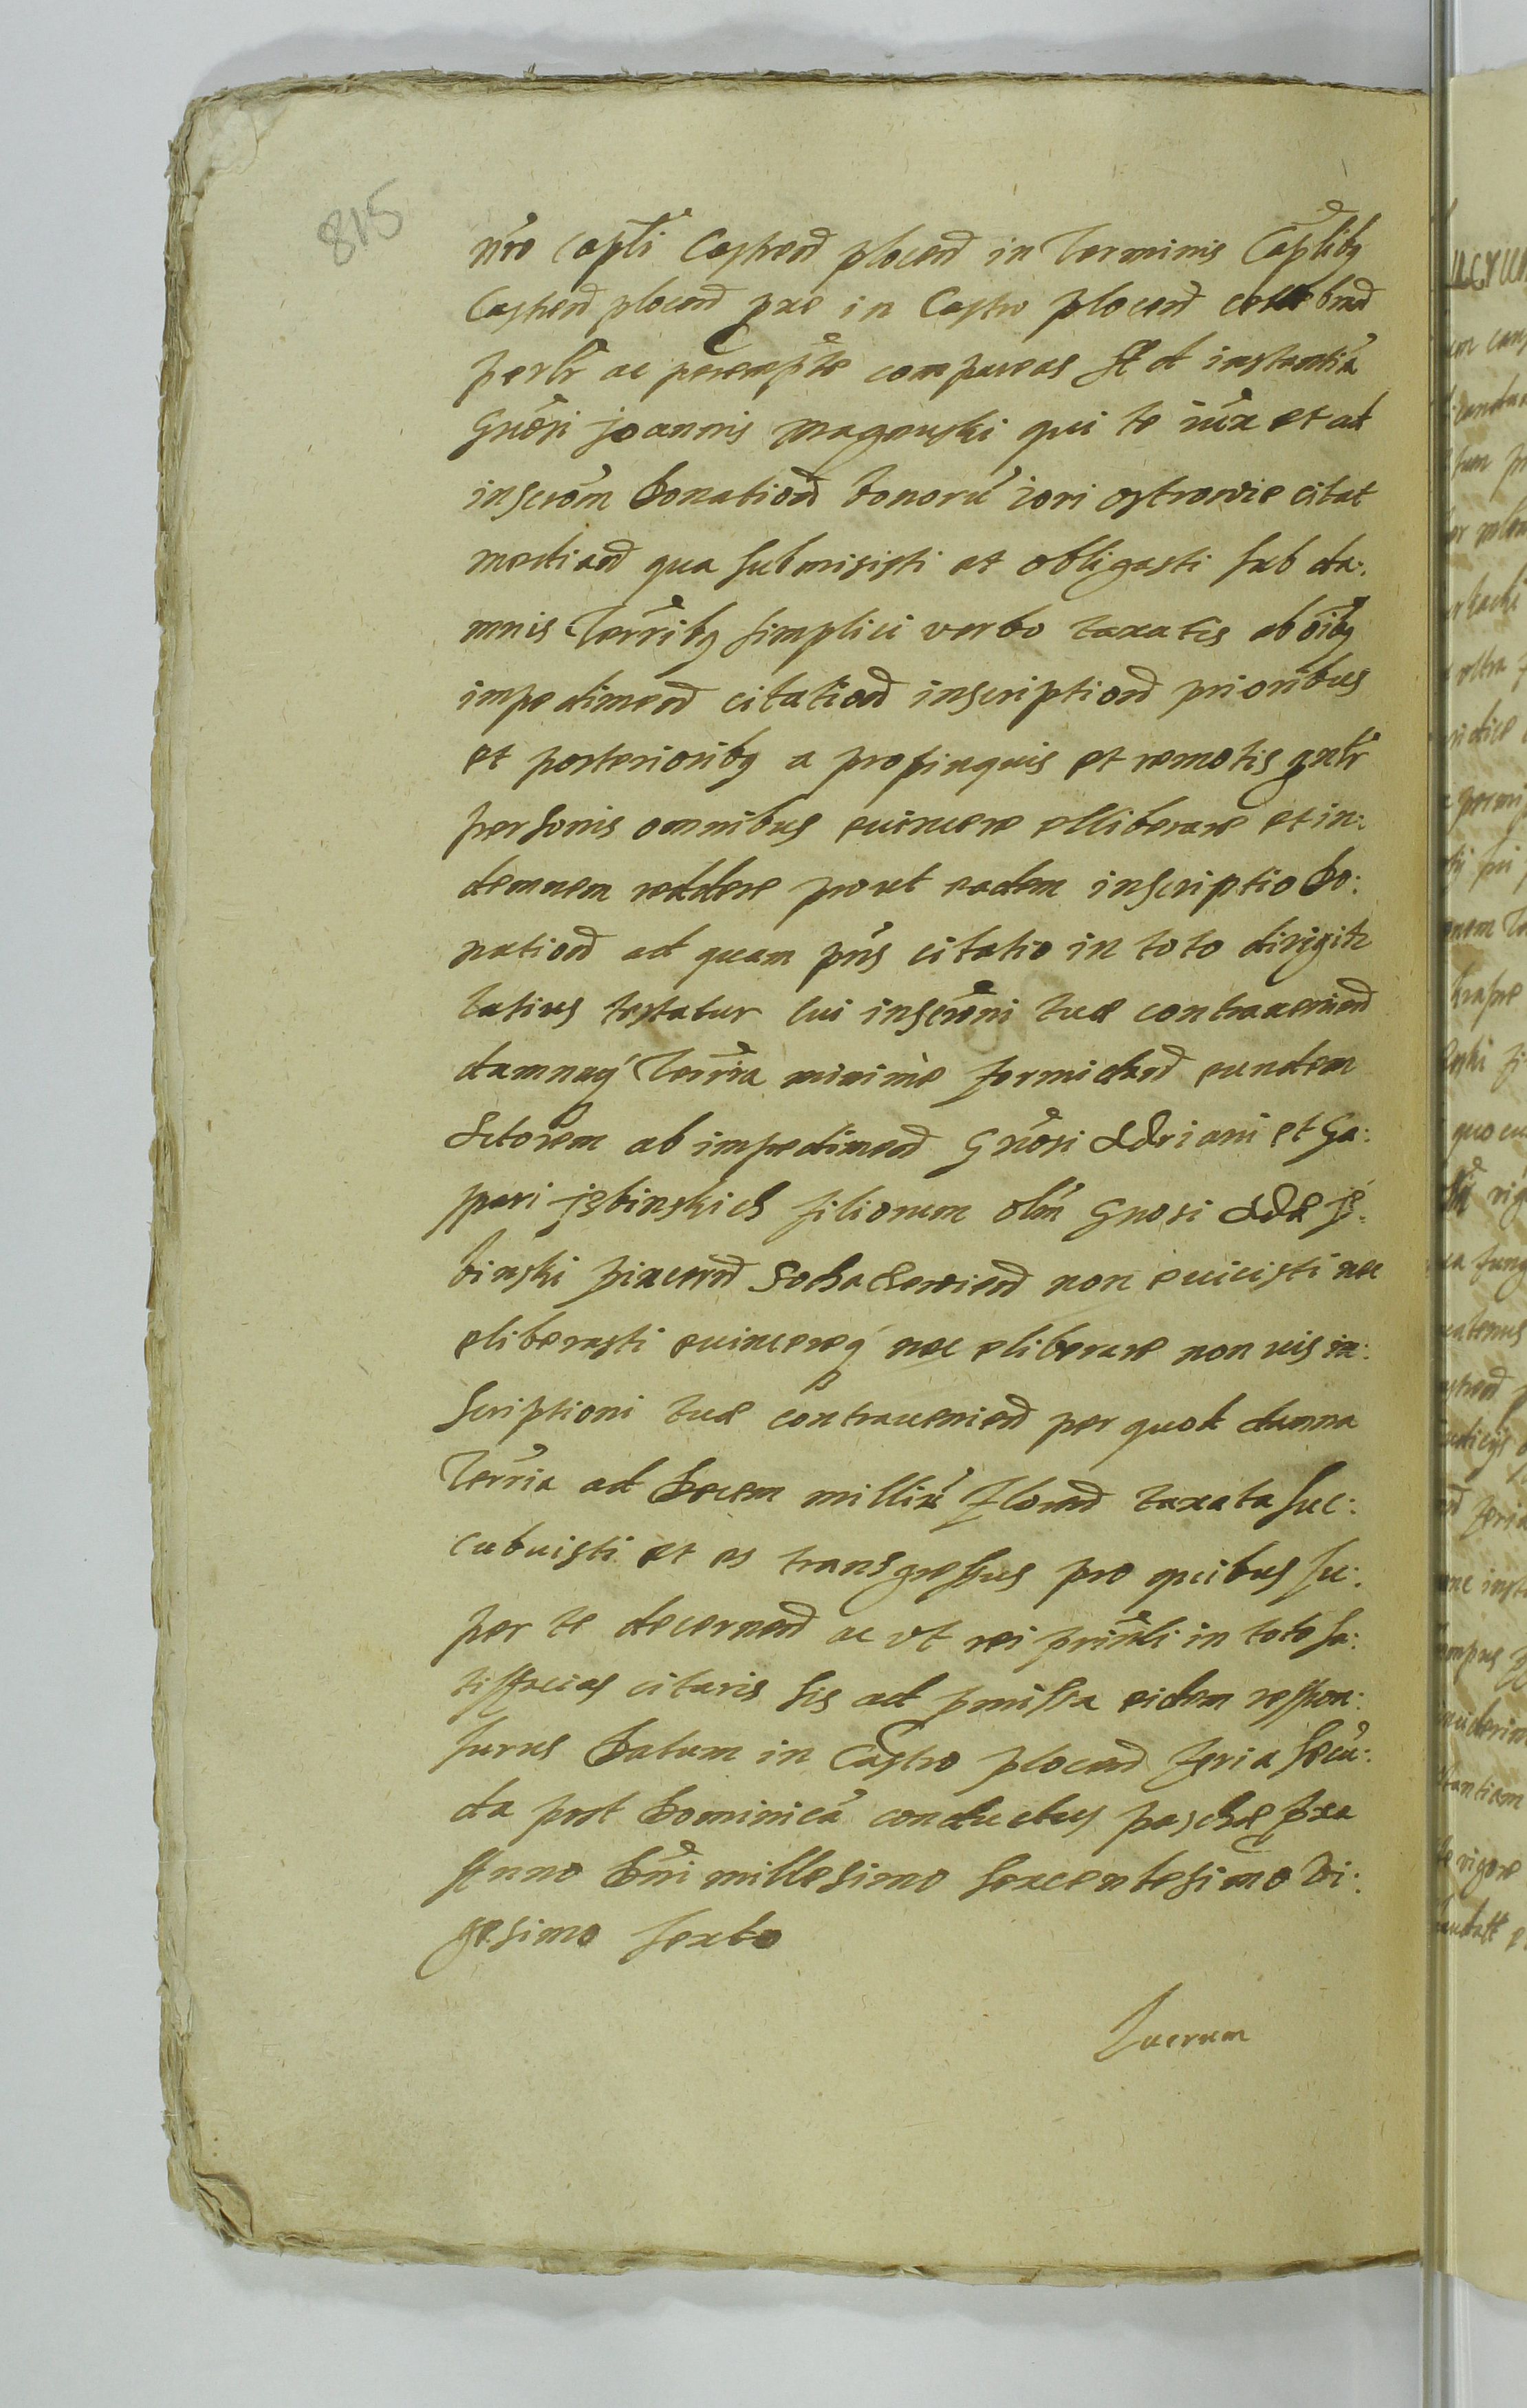 815
nr̃o Capl̃i Castren̄ plocen̄ in Terminis Cap̃libq
Castren̄ plocen̄ pxe in Castro plocen̄ celebran̄
perlr̃ ac peremp̃te compareas Ad instantiã
Gnõsi joannis magenski qui te iux̃a et ad
inscrõm Donation̄ bonorũ iori ostrowie citat
median̄ qua submisisti et obligasti sub da:
mnis Terr̃ibq simplici verbo taxatis ab oĩbq
impedimen̄ citation̄ inscription̄ prioribus
et posterioribq a propinquis et remotis gnlr̃
personis omnibus euincere elliberare et in:
demnem reddere prout eadem inscriptio Do:
nation̄ ad quam pñs citatio in toto dirigitr
latius testatur Cui inscrõni tuæ contrauenien̄
damnaq́ Terr̃ia minimè formidan̄ eundem
Actorem ab impedimen̄ Gnõsi Adriani et Ga:
spari jębinskich filiorum olim̃ Gnosi Adæ ję:
binski pincern̄ Sochaczewien̄ non euicisti nec
eliberasti euincereq́ nec eliberare non uis in:
scriptioni tuæ contrauenien̄ per quod damna
Terr̃ia ad Decem milliũ floren̄ taxata suc:
cubuisti et es transgressus pro quibus su:
per te decernen̄ ac vt rei prin̄li in toto sa:
tisfacias citaris sis ad pmissa eidem respon:
surus Datum in Castro plocen̄ feria secũ:
da post Dominicã conductus paschæ pxa
Anno Dñi millesimo sexcentesimo vi:
gesimo sexto
Lucrum